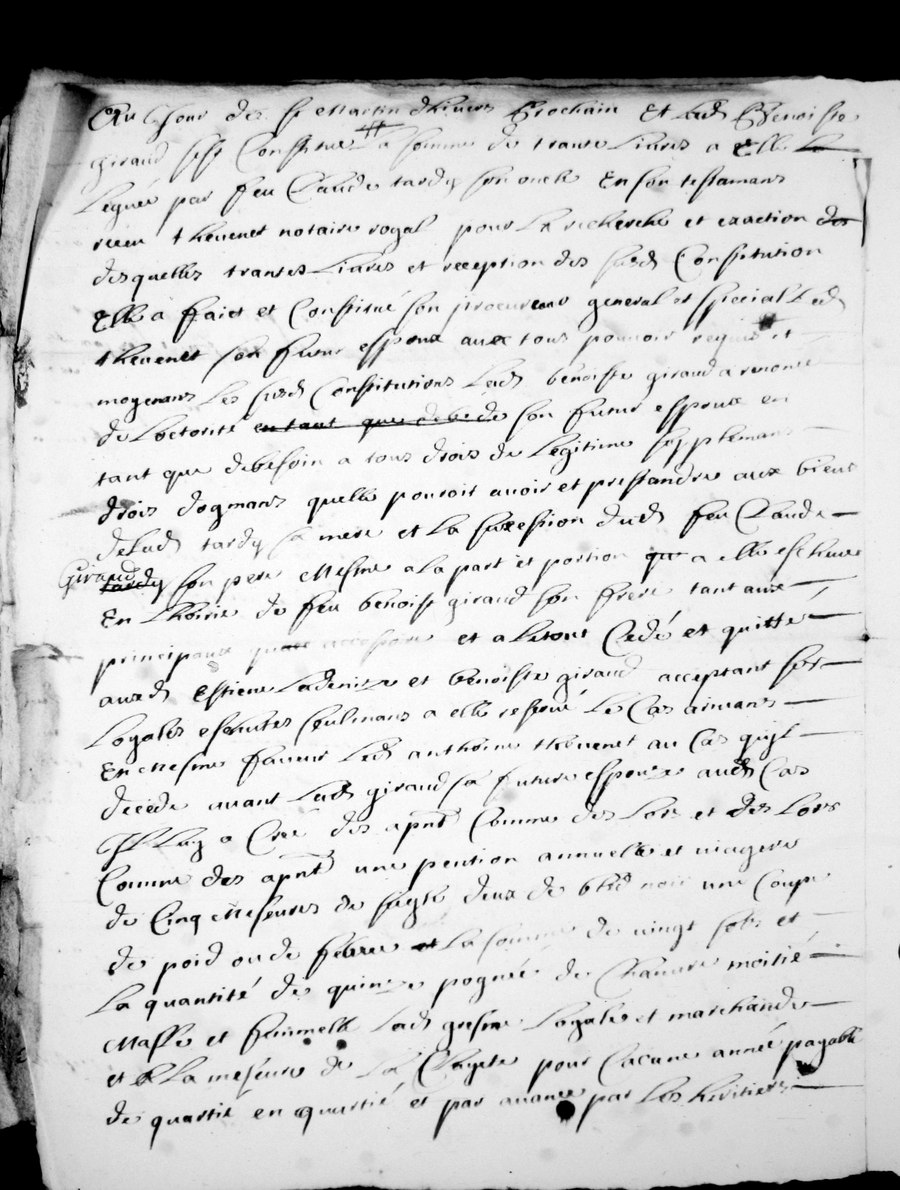 Au Jour de st Martin dhivers Prochain Et Lad Benoiste
giraud sest Constitue La somme de trante Livres a Elle
Leguée par feu Claude tardy son oncle En son testamans
receu thevenet notaire royal pour La recherche et exaction des
desquelles trantes Livres et reception des susd Constitution
Elle a faict et Constitué son procureur general et special Led
thevenet son futur espoux avex tous pouvoir requis et
moyenans Les susd Constitutions Lad benoiste giraud a renoncé
de Loctorité en tant que debede son futur espoux en
tant que debesoin a tous drois de Legitime supplemans
drois dogmans quelle pouroit avoir et prestandre aux biens
deLad tardy sa mere et La sucession dud feu Claude
Giraud
tardy son pere Mesme a la part et portion que a elle escheue
En Lhoirie de feu benoist giraud son frere tant aux
principaux accessoire et a Letout Cedé et quitté
auxd Estiene Ladenize et benoiste giraud acceptant
Loyales seulmans a elle reservé Le Cas
En Mesme faveur Led anthoine thevenet au Cas quil
decede avant Lad giraud sa future espouze aud Cas
Il Luy a Cree des apnt Comme des Lors et des Lors
Comme des apnt une pention annuelle et viagere
de Cinq Mesures de segle deux de bled noir une Coupe
de poid ou de febves et La somme de vingt sols et
La quantité de quinze pognée de Chanvre moitié
Masle et fummelle Lad gresne Loyale et marchande
et a La mesure de La Clayete pour Cacune année payable
de quartié en quartié et par avance par Les heritiers